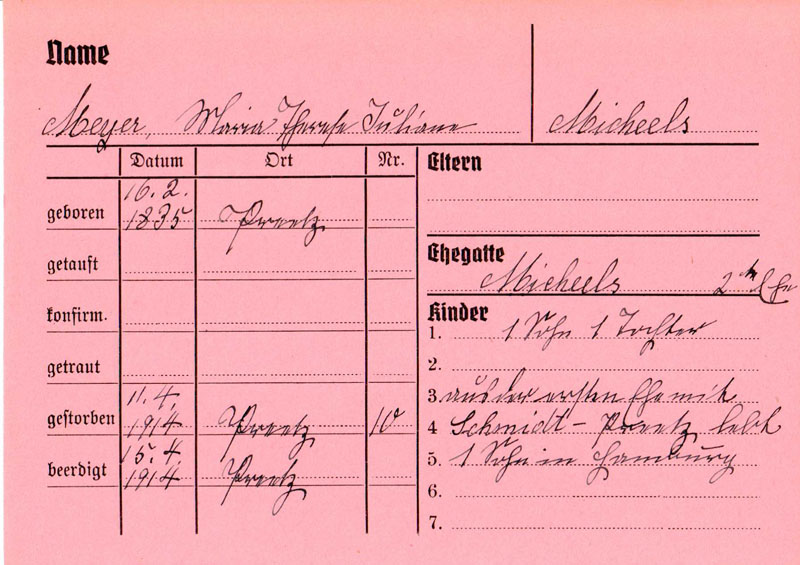 Name
Meyer, Maria Therese Juliane Micheels
Datum Ort Nr.
geboren 16. 2. 1835 Preetz
getauft
konfirm.
getraut
gestorben 11. 4. 1914 Preetz 10
beerdigt 15. 4. 1914 Preetz
Eltern
Ehegatte
Micheels 2te Ehe
Kinder
1. 1 Sohn 1 Tochter
2.
3 aus der ersten Ehe mit
4 Schmidt - Preetz lebt
5. 1 Sohn in Hamburg
6.
7.